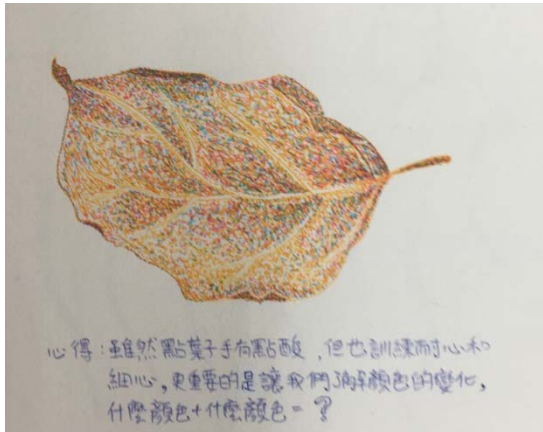 心得：雖然點葉子手有點酸，但也訓練耐心和
細心，更重要的是讓我們了解顏色的變化，
什麼顏色+什麼顏色=？